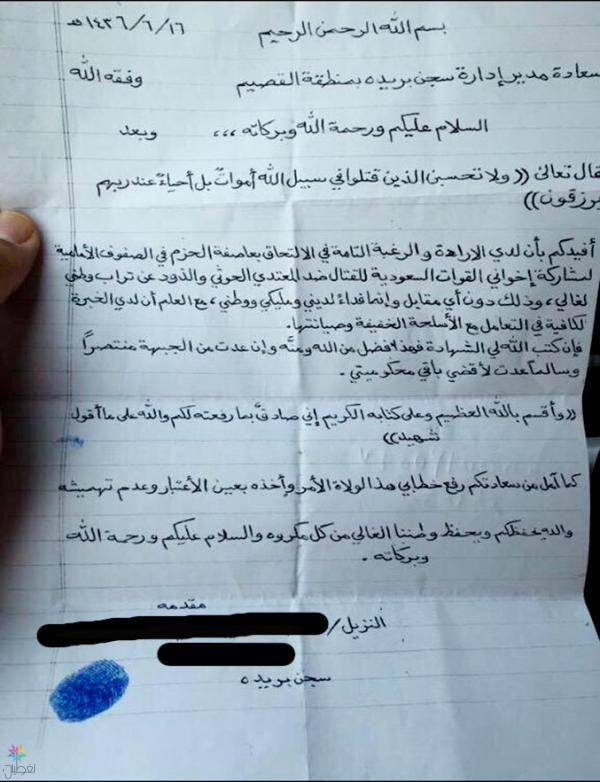 بسم الله الرحمن الرحيم ١٤٣٦/٦/١٦ هـ
سعادة مدير إدارة سجن بريده بمنطقة القصيم وفقه الله
السلام عليكم ورحمة الله وبركاته ،،، وبعد
قال تعالى (( ولا تحسبن الذين قتلوا في سبيل الله أمواتٌ بل أحياءٌ عند ربهم
يرزقون))
أفيدكم بأن لدي الإرادة والرغبة التامة في الالتحاق بعاصفة الحزم في الصفوف الأمامية
لمشاركة إخواني القوات السعودية للقتال ضد المعتدي الحوثي والذود عن تراب وطني
لغالي، وذلك دون أي مقابل وإنما فداءً لديني ومليكي ووطني، مع العلم أن لدي الخبرة
لكافية في التعامل مع الأسلحة الخفيفة وصيانتها.
فإن كتب الله لي الشهادة فهذا فضل من الله ومنَّه وإن عدت من الجبهة منتصراً
وسالماً عدت لأقضي باقي محكوميتي.
((وأقسم بالله العظيم وعلى كتابه الكريم إني صادقٌ بما رفعته لكم والله على ما أقول
شهيد))
كما آمل من سعادتكم رفع خطابي هذا لولاة الأمر وأخذه بعين الأعتبار وعدم تهميشه
والله يحفظكم ويحفظ وطننا الغالي من كل مكروه والسلام عليكم ورحمة الله
وبركاته.
مقدمه
النزيل/
سجن بريده